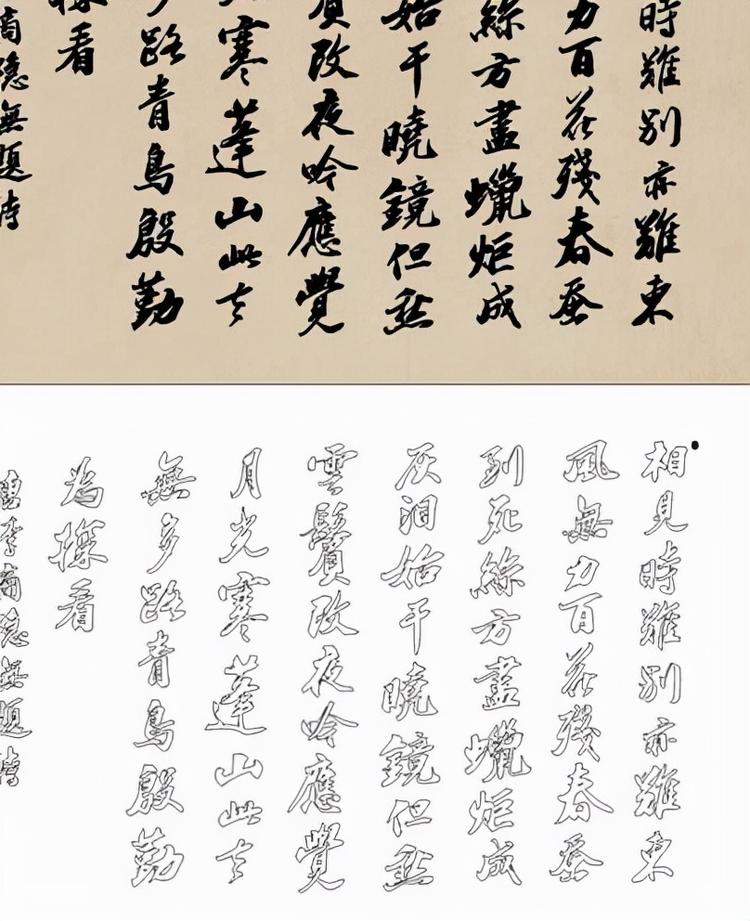 時難別亦難東
力百花殘春蚕
絲方盡蠟炬成
始干曉鏡但愁
鬢改夜吟應覺
寒蓬山此去
多路青鳥殷勤
探看
商隱無題詩
相見時難別亦難東
風無力百花殘春蚕
到死絲方盡蠟炬成
灰泪始干曉鏡但愁
雲鬢改夜吟應覺
月光寒蓬山此去
無多路青鳥殷勤
為探看
李商隱無題詩